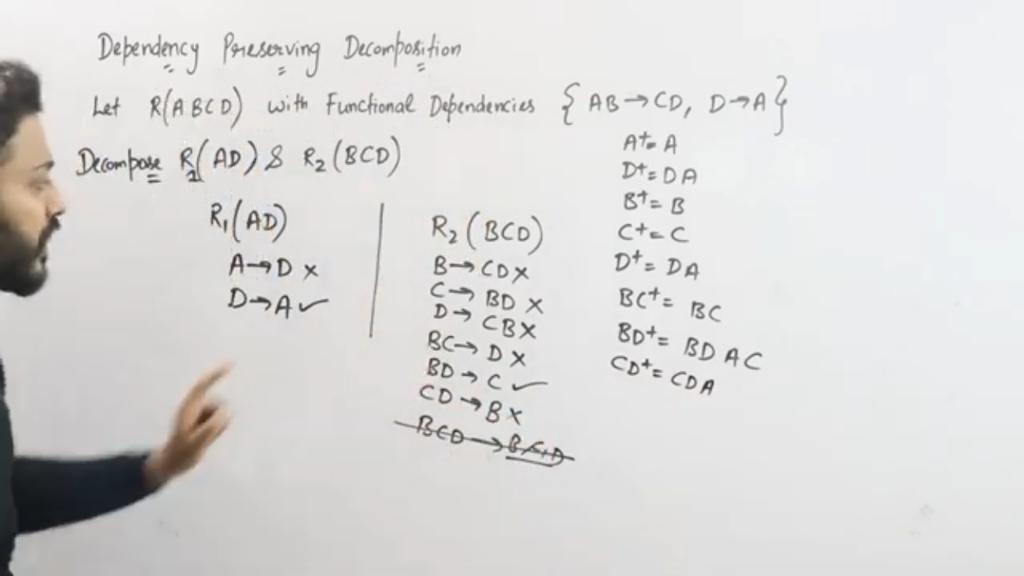 Dependency Preserving Decomposition
Let R(ABCD) with Functional Dependencies { AB→CD, D→A }
Decompose R1(AD) & R2(BCD)
R1(AD)
A→D ×
D→A ✓
R2(BCD)
B→CD ×
C→BD ×
D→CB ×
BC→D ×
BD→C ✓
CD→B ×
BCD→BCD
A+= A
D+= DA
B+= B
C+= C
D+= DA
BC+= BC
BD+= BDAC
CD+= CDA